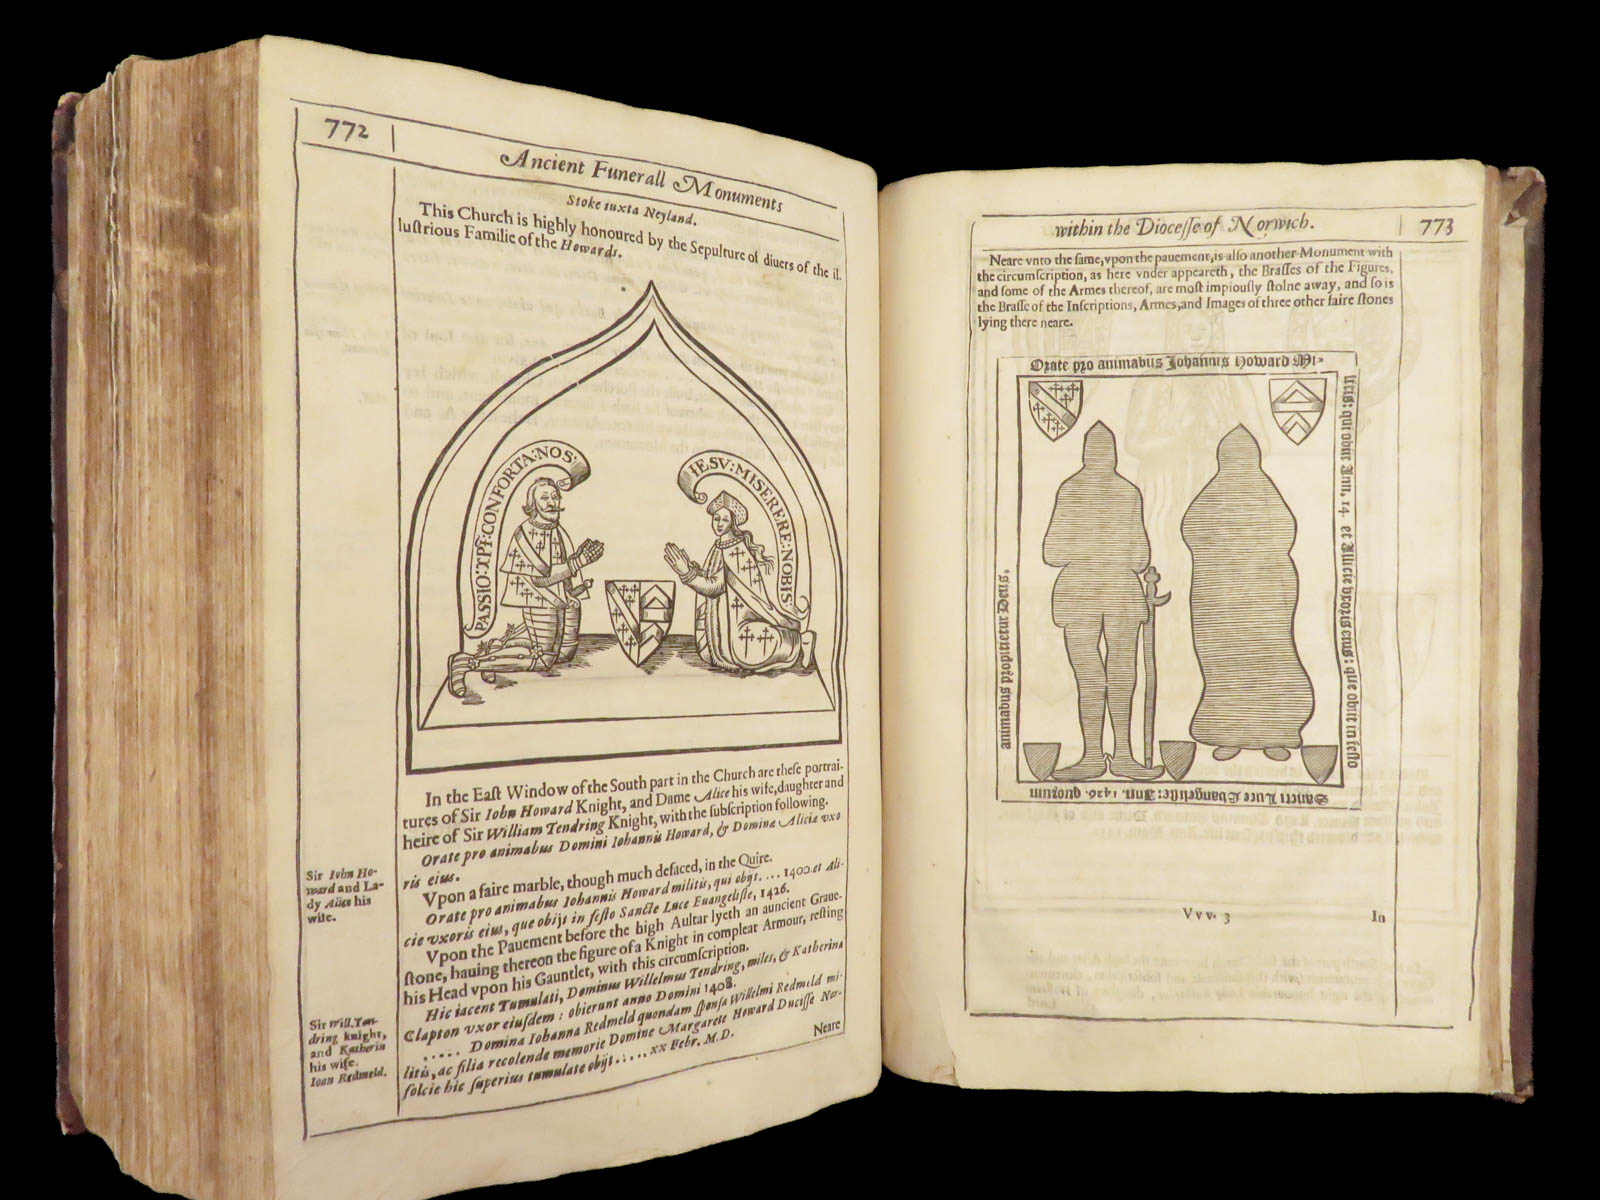 772
Ancient Funerall Monuments
Stoke iuxta Neyland.
This Church is highly honoured by the Sepulture of diuers of the il-
luſtrious Familie of the Howards.
PASSIO: XPI: CONFORTA: NOS:
IESV: MISERERE: NOBIS:
In the Eaſt Window of the South part in the Church are theſe portrai-
tures of Sir Iohn Howard Knight, and Dame Alice his wife, daughter and
heire of Sir William Tendring Knight, with the ſubſcription following.
Orate pro animabus Domini Iohannis Howard, & Domine Alicie vxo
ris eius.
Vpon a faire marble, though much defaced, in the Quire.
Orate pro animabus Iohannis Howard militis, qui obijt.... 1400. et Ali-
cie vxoris eius, que obijt in feſto Sancte Luce Euangeliſte, 1426.
Vpon the Pauement before the high Aultar lyeth an auncient Graue-
ſtone, hauing thereon the figure of a Knight in compleat Armour, reſting
his Head vpon his Gauntlet, with this circumſcription.
Hic iacent Tumulati, Dominus Willelmus Tendring, miles, & Katherina
Clapton vxor eiuſdem: obierunt anno Domini 1408.
..... Domina Iohanna Redmeld quondam ſponſa Willelmi Redmeld mi-
litis, ac filia recolende memorie Domine Margarete Howard Duciſſe Nor-
folcie hic ſuperius tumulate obijt..... xx Febr. M.D.
Neare
Sir Iohn Ho-
ward and La-
dy Alice his
wife.
Sir Will. Ten-
dring knight,
and Katherin
his wife.
Ioan Redmeld.
within the Dioceſſe of Norwich.
773
Neare vnto the ſame, vpon the pauement, is alſo another Monument with
the circumſcription, as here vnder appeareth, the Braſſes of the Figures,
and ſome of the Armes thereof, are moſt impiouſly ſtolne away, and ſo is
the Braſſe of the Inſcriptions, Armes, and Images of three other faire ſtones
lying there neare.
Orate pro animabus Johannis Howard Mi-
litis: qui obiit Ann. 14. et Alicie vxoris eius: que obiit in feſto
Sancti Luce Evangeliſte: Ann. 1426. quorum
animabus propitietur Deus.
Vvv. 3
In